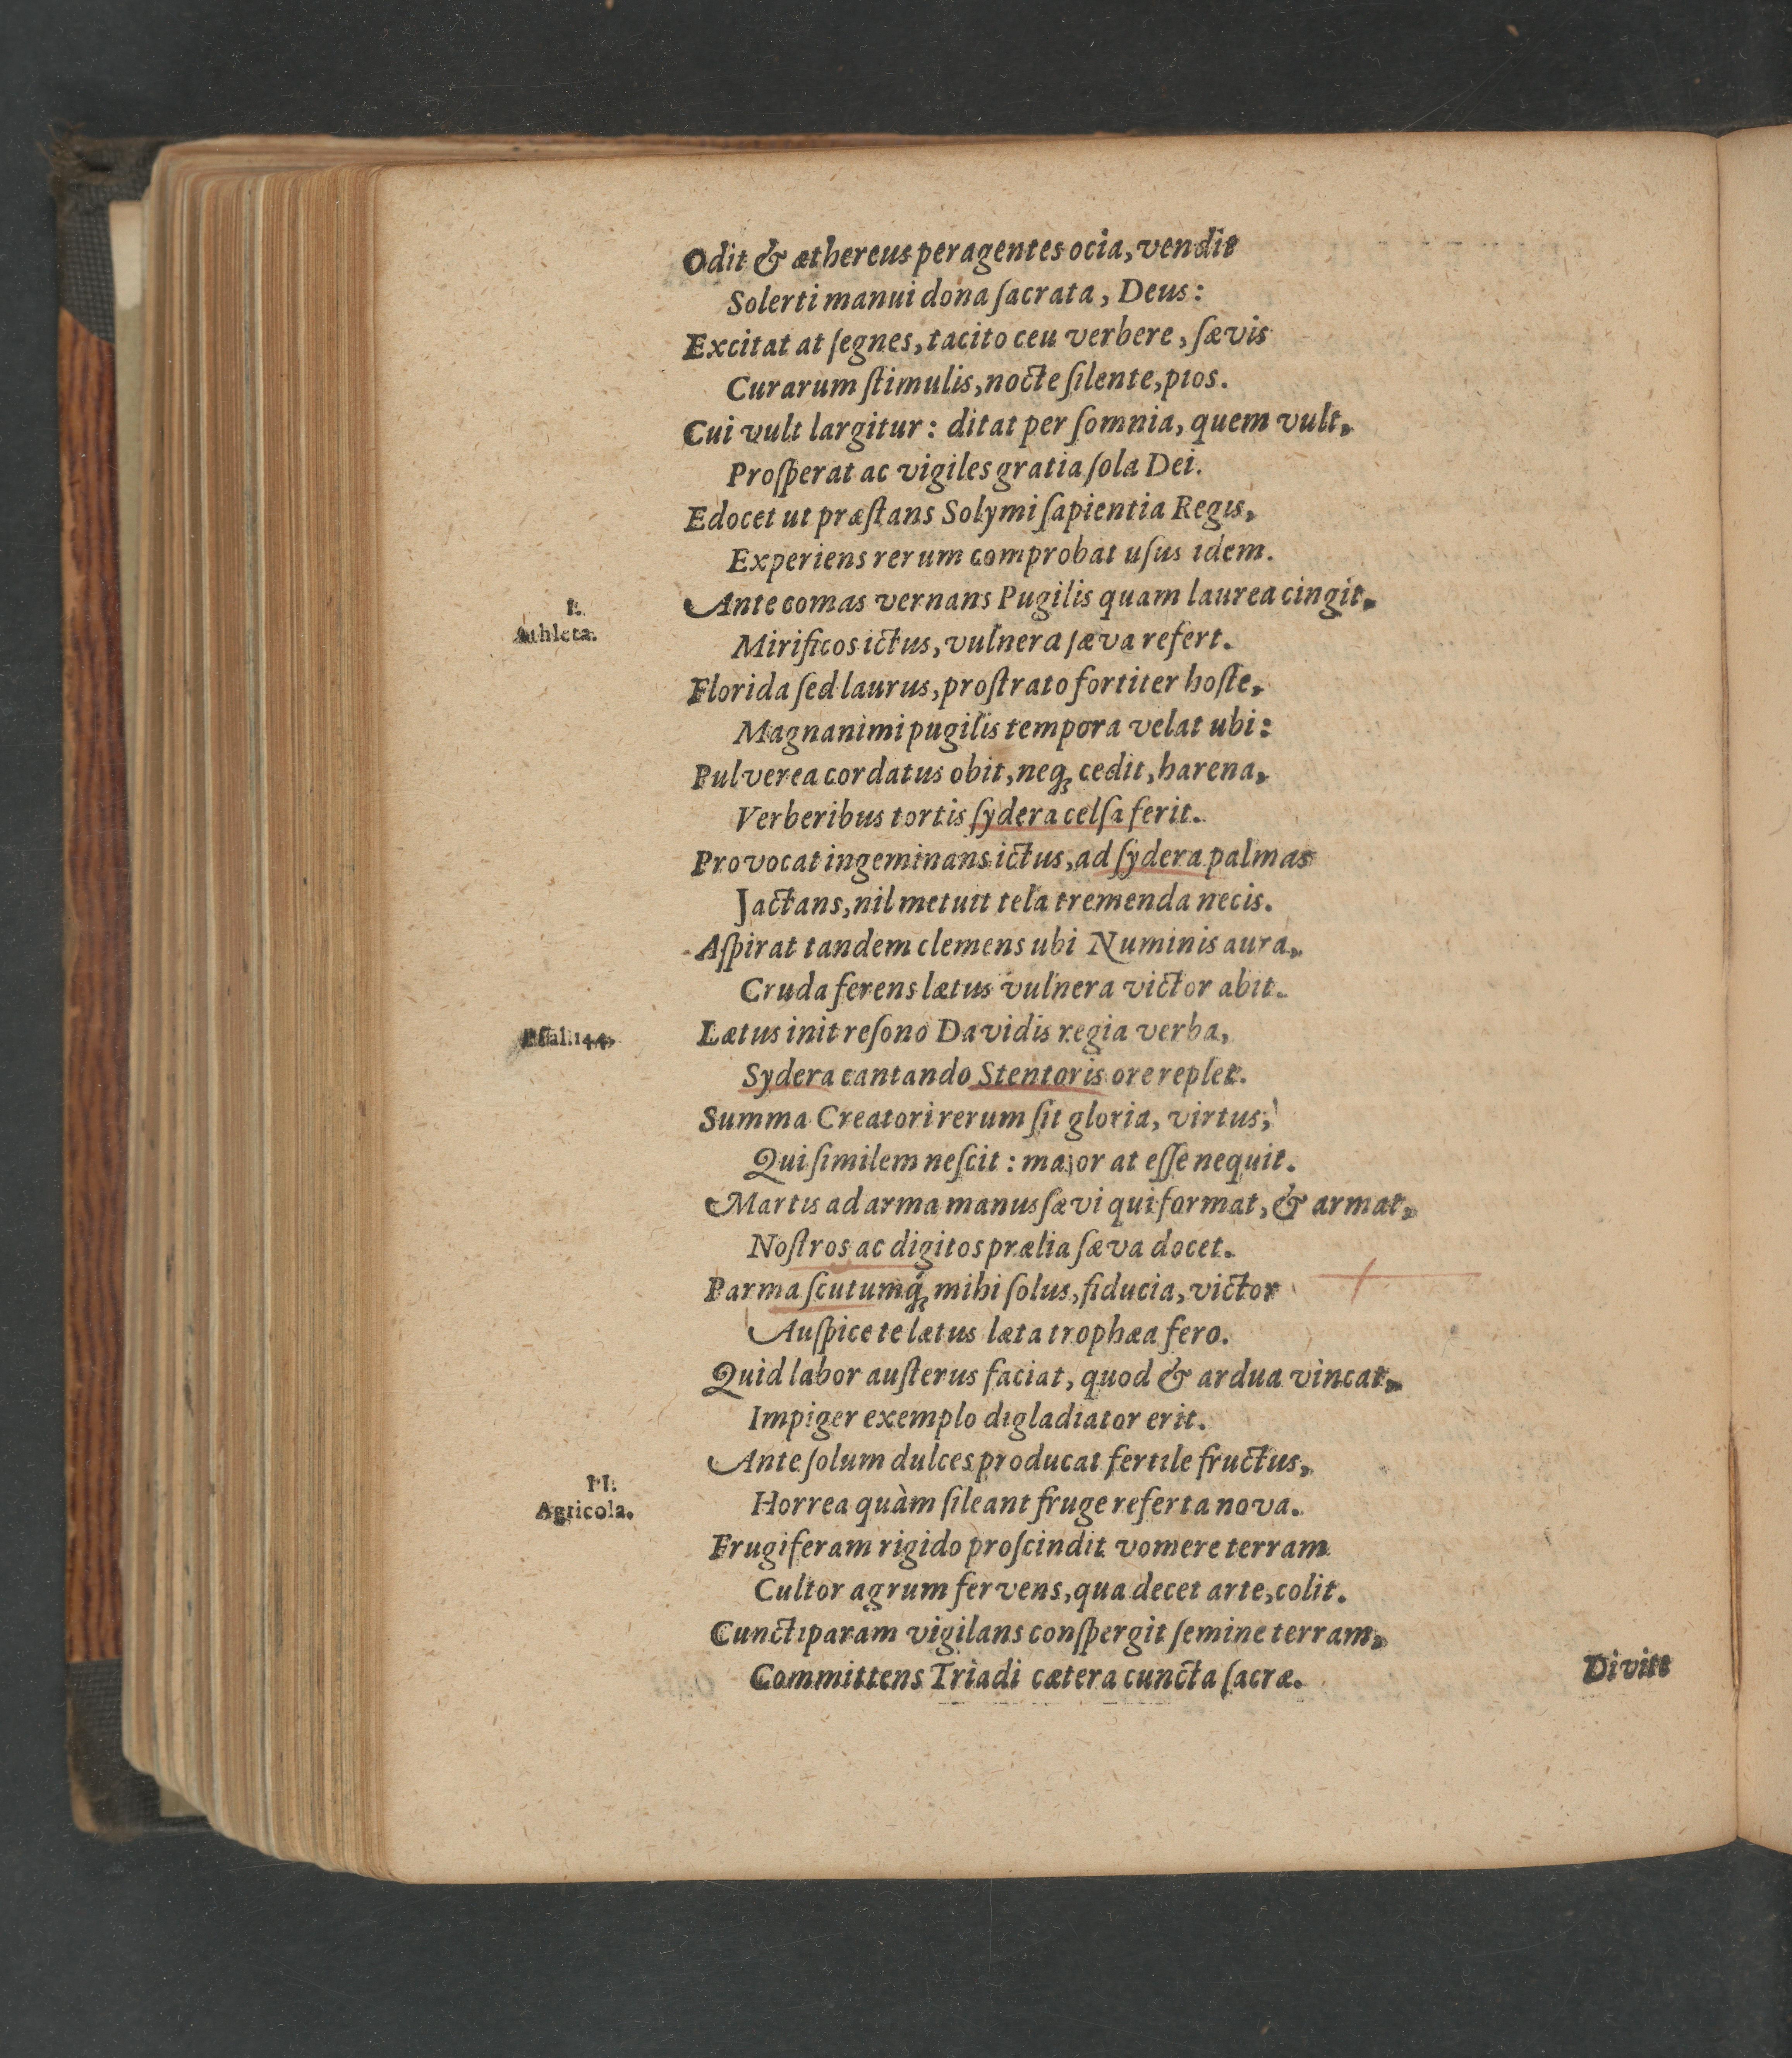 Odit & æthereus peragentes ocia, vendit
Solerti manui dona ſacrata, Deus:
Excitat at ſegnes, tacito ceu verbere, ſævis
Curarum ſtimulis, nocte ſilente, pios.
Cui vult largitur: ditat per ſomnia, quem vult,
Proſperat ac vigiles gratia ſola Dei.
Edocet ut præſtans Solymi ſapientia Regis,
Experiens rerum comprobat uſus idem.
I.
Athleta.
Ante comas vernans Pugilis quam laurea cingit,
Mirificos ictus, vulnera ſæva refert.
Florida ſed laurus, proſtrato fortiter hoſte,
Magnanimi pugilis tempora velat ubi:
Pulverea cordatus obit, neq; cedit, harena,
Verberibus tortis ſydera celſa ferit.
Provocat ingeminans ictus, ad ſydera palmas
Jactans, nil metuit tela tremenda necis.
Aſpirat tandem clemens ubi Numinis aura,
Cruda ferens lætus vulnera victor abit.
Pſal. 144.
Lætus init reſono Davidis regia verba,
Sydera cantando Stentoris ore replet.
Summa Creatori rerum ſit gloria, virtus,
Qui ſimilem neſcit: major at eſſe nequit.
Martis ad arma manus ſævi qui format, & armat,
Noſtros ac digitos prælia ſæva docet.
Parma ſcutumq́; mihi ſolus, fiducia, victor
Auſpice te lætus læta trophæa fero.
Quid labor auſterus faciat, quod & ardua vincat,
Impiger exemplo digladiator erit.
Ante ſolum dulces producat fertile fructus,
II.
Agricola.
Horrea quàm ſileant fruge referta nova.
Frugiferam rigido proſcindit vomere terram
Cultor agrum fervens, qua decet arte, colit.
Cunctiparam vigilans conſpergit ſemine terram,
Committens Triadi cætera cuncta ſacræ.
Divite